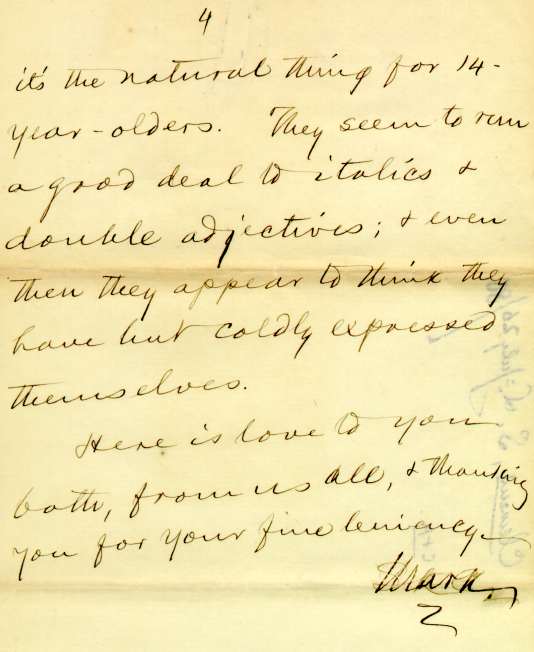 4
it's the natural thing for 14-
year-olders. They seem to run
a good deal to italics &
double adjectives; & even
then they appear to think they
have but coldly expressed
themselves.
Here is love to you
both, from us all, & thanking
you for your fine leniency.
Mark.